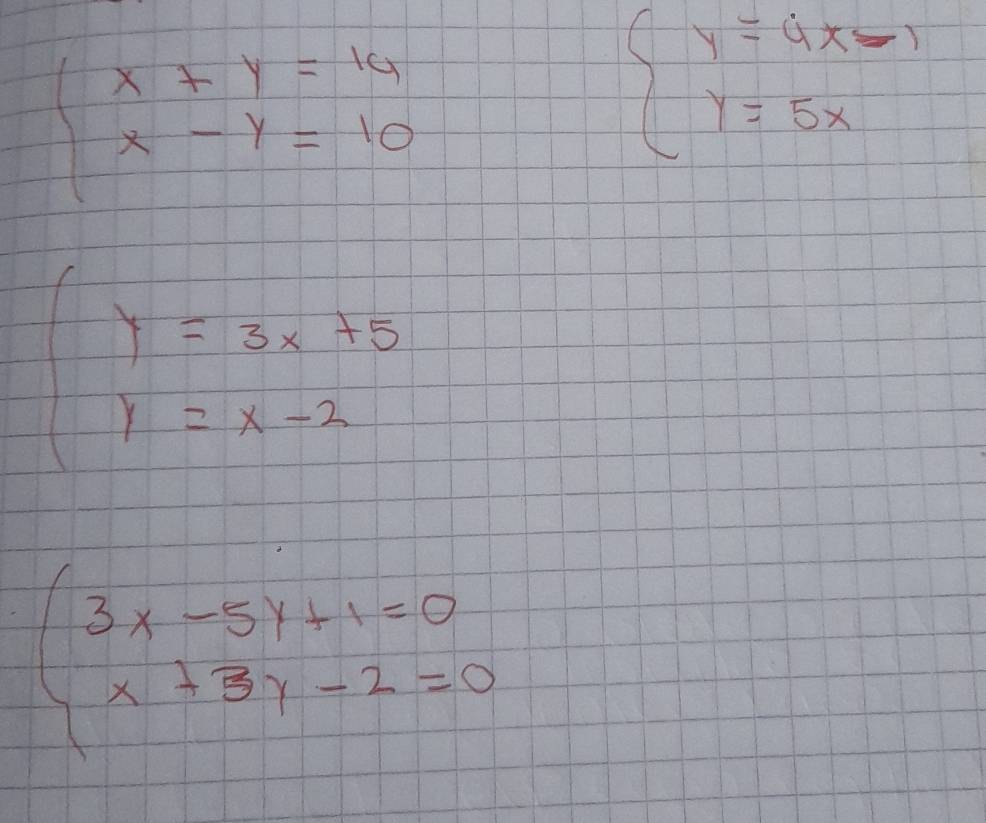 x + y = 14
x - y = 10
y = 4x - 1
y = 5x
y = 3x + 5
y = x - 2
3x - 5y + 1 = 0
x + 3y - 2 = 0